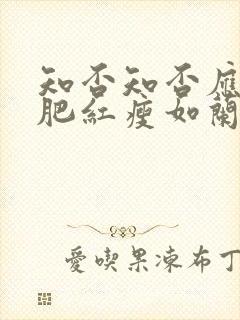 知否知否應
肥紅瘦如蘭
愛喫果凍布丁